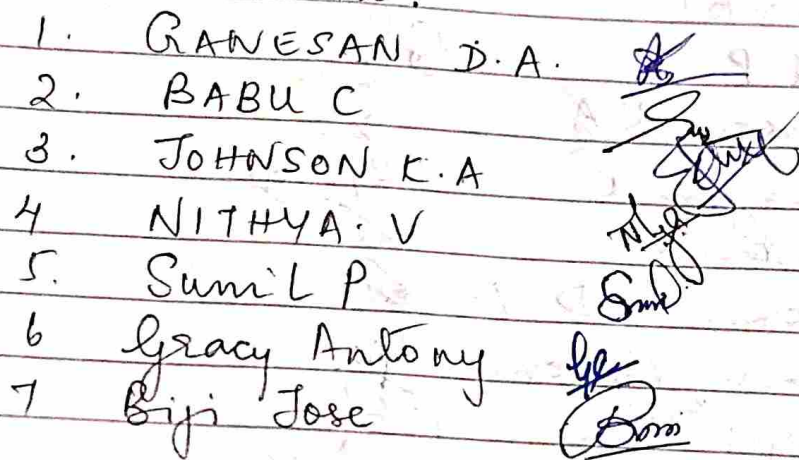 1. GANESAN D.A.
2. BABU C
3. JOHNSON K.A
4 NITHYA. V
5. Sunil P
6 Gracy Antony
7 Biji Jose